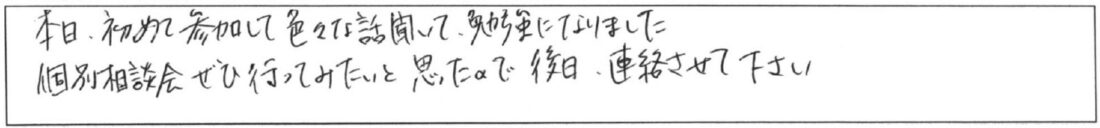 本日、初めて参加して色々な話聞いて、勉強になりました
個別相談会ぜひ行ってみたいと思ったので後日、連絡させて下さい